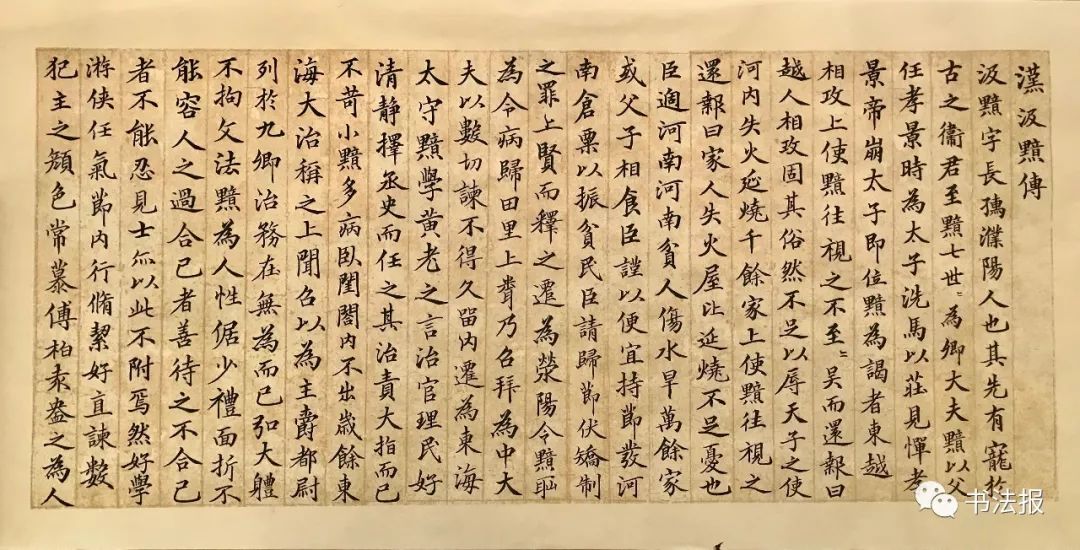 漢汲黯傳
汲黯字長孺濮陽人也其先有寵於
古之衞君至黯七世〻為卿大夫黯以父
任孝景時為太子洗馬以莊見憚孝
景帝崩太子即位黯為謁者東越
相攻上使黯往視之不至〻吳而還報曰
越人相攻固其俗然不足以辱天子之使
河内失火延燒千餘家上使黯往視之
還報曰家人失火屋比延燒不足憂也
臣過河南河南貧人傷水旱萬餘家
或父子相食臣謹以便宜持節發河
南倉粟以振貧民臣請歸節伏矯制
之罪上賢而釋之遷為滎陽令黯恥
為令病歸田里上聞乃召拜為中大
夫以數切諫不得久留内遷為東海
太守黯學黄老之言治官理民好
清静擇丞史而任之其治責大指而已
不苛小黯多病臥閨閤内不出歲餘東
海大治稱之上聞召以為主爵都尉
列於九卿治務在無為而已弘大體
不拘文法黯為人性倨少禮面折不
能容人之過合己者善待之不合己
者不能忍見士亦以此不附焉然好學
游俠任氣節内行脩潔好直諫數
犯主之顔色常慕傅柏袁盎之為人
书法报